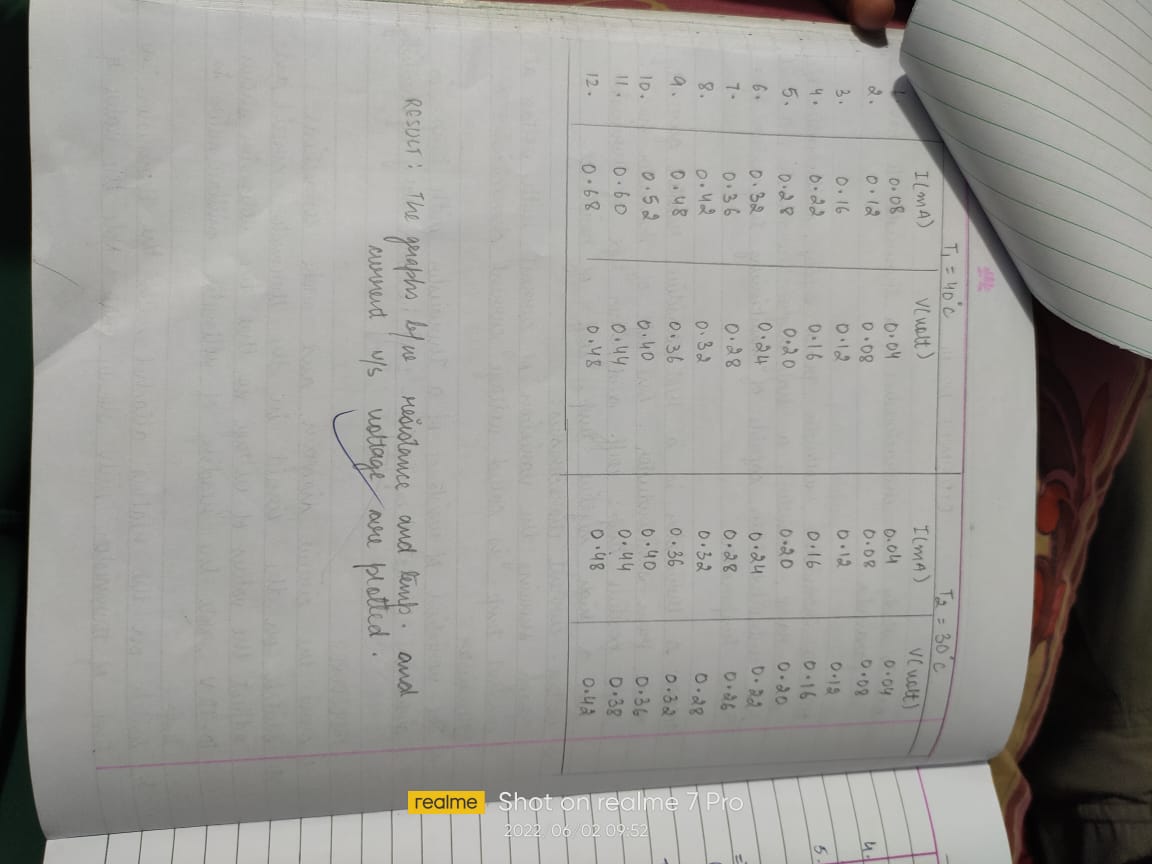 T₁ = 40°C T₂ = 30°C
I(mA) V(volt) I(mA) V(volt)
1. 0.08 0.04 0.04 0.04
2. 0.12 0.08 0.08 0.08
3. 0.16 0.12 0.12 0.12
4. 0.22 0.16 0.16 0.16
5. 0.28 0.20 0.20 0.20
6. 0.32 0.24 0.24 0.22
7. 0.36 0.28 0.28 0.26
8. 0.42 0.32 0.32 0.28
9. 0.48 0.36 0.36 0.32
10. 0.52 0.40 0.40 0.36
11. 0.60 0.44 0.44 0.38
12. 0.68 0.48 0.48 0.42
RESULT: The graphs b/w resistance and temp. and
current v/s voltage are plotted.
4.
5.
realme Shot on realme 7 Pro
2022.06.02 09:52